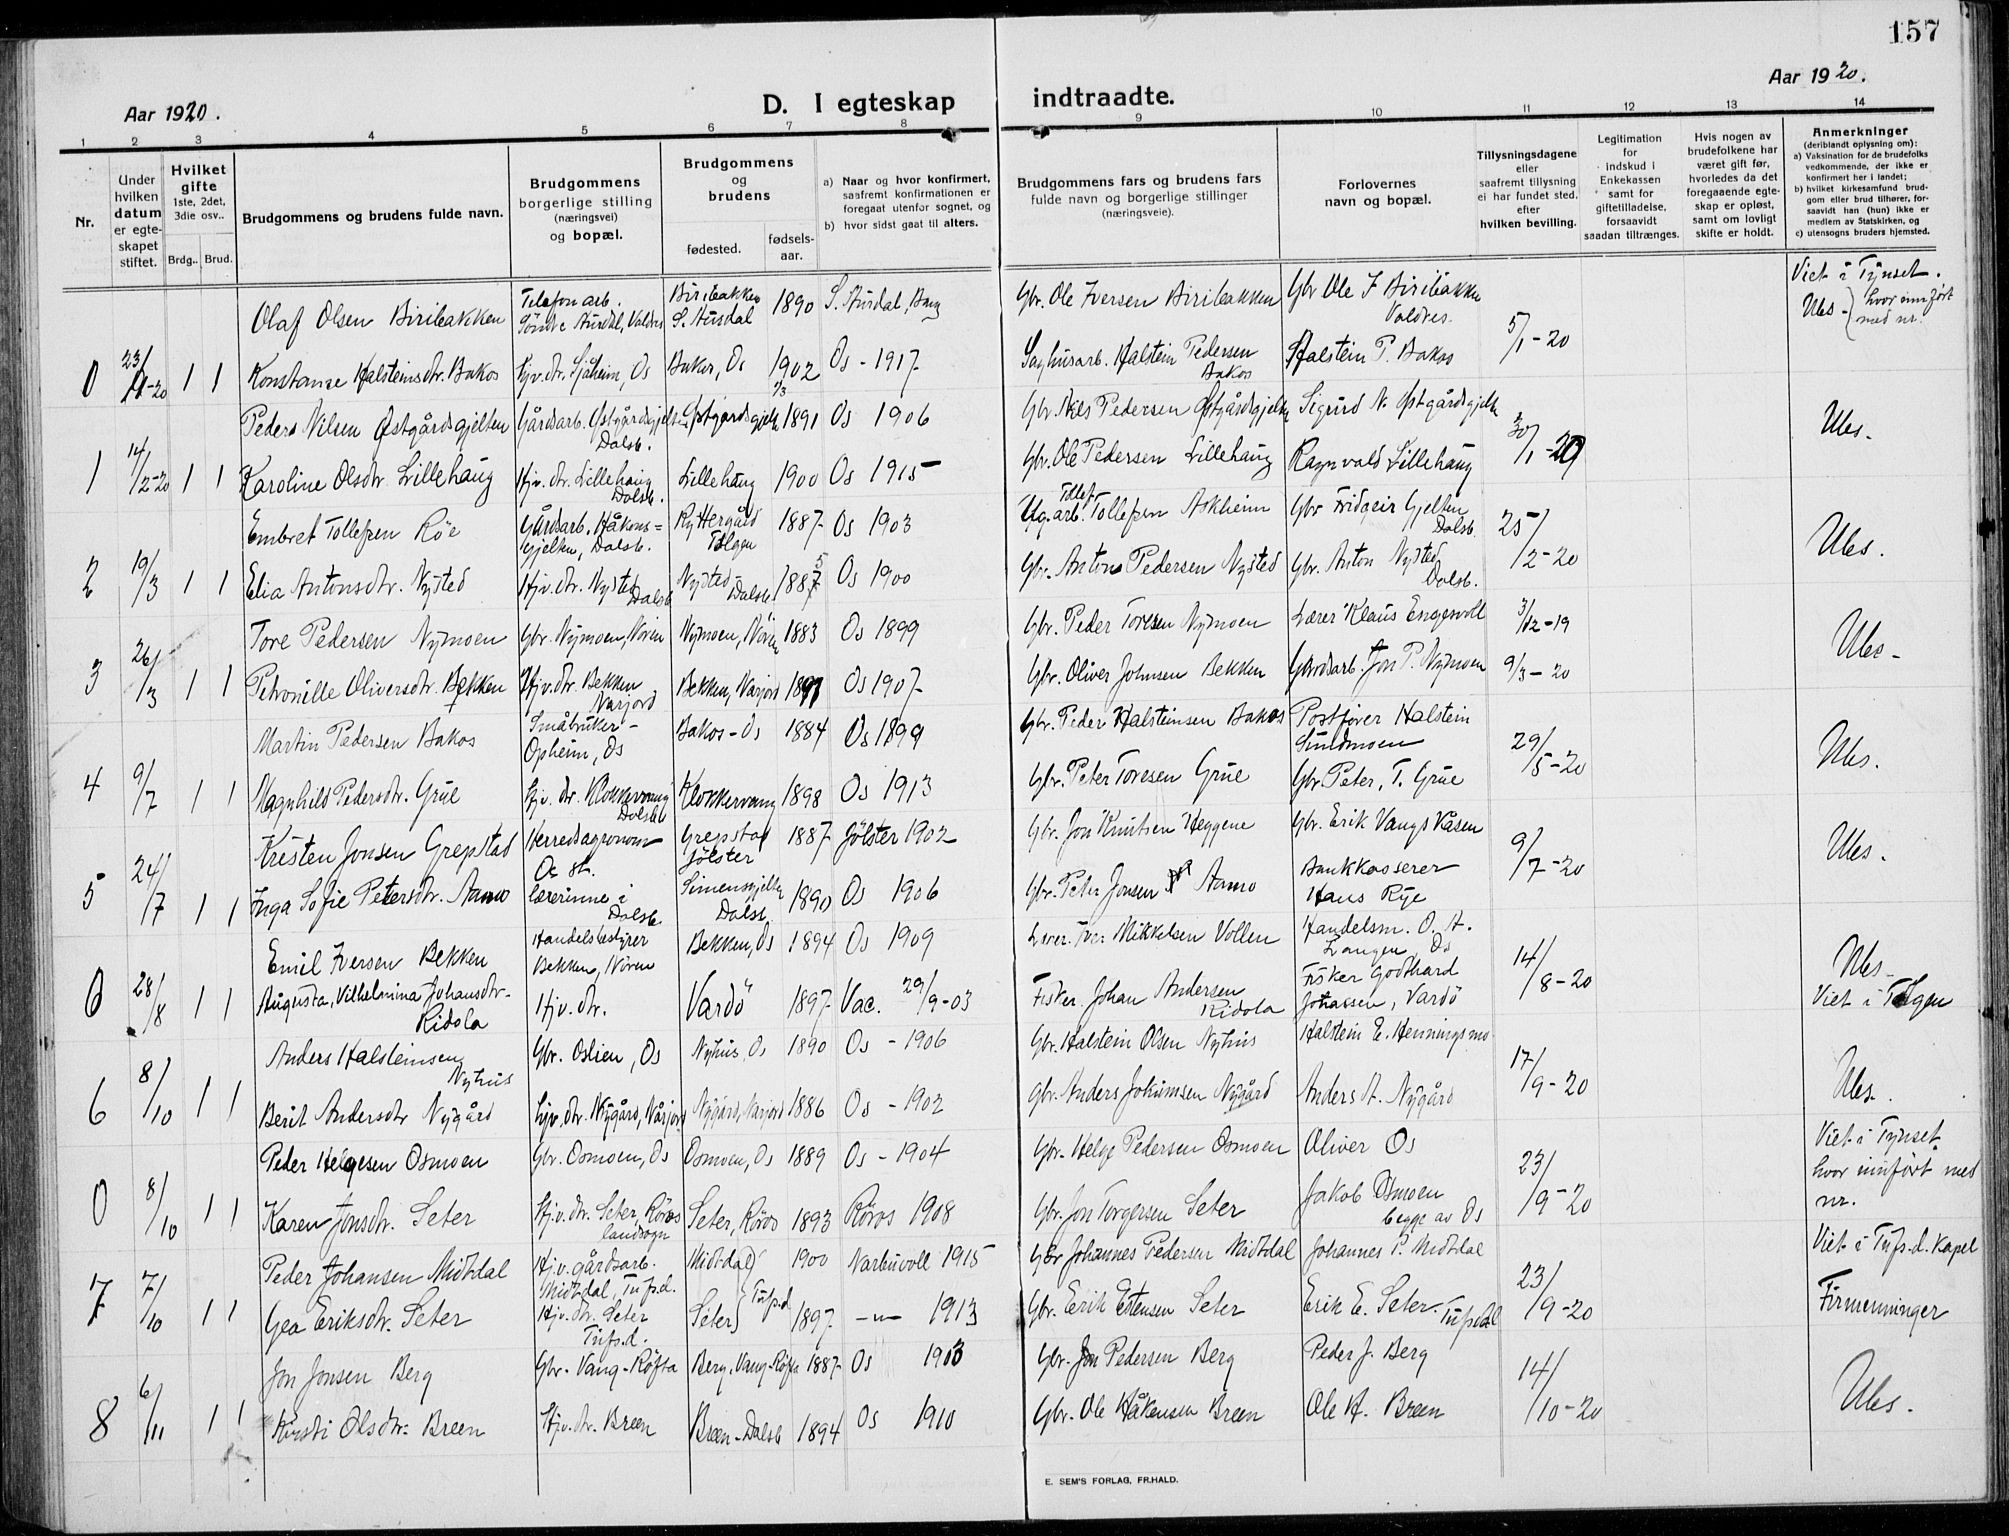 157
Aar 1920.
D. I egteskap indtraadte.
Aar 1920.
1 2 3 4 5 6 7 8 9 10 11 12 13 14
Nr.
Under hvilken datum er egteskapet stiftet.
Hvilket gifte 1ste, 2det, 3die osv..
Brdg.. Brud.
Brudgommens og brudens fulde navn.
Brudgommens borgerlige stilling (næringsvei) og bopæl.
Brudgommens og brudens
fødested.
fødsels-aar.
a) Naar og hvor konfirmert, saafremt konfirmationen er foregaat utenfor sognet, og
b) hvor sidst gaat til alters.
Brudgommens fars og brudens fars fulde navn og borgerlige stillinger (næringsveie).
Forlovernes navn og bopæl.
Tillysningsdagene eller saafremt tillysning ei har fundet sted, efter hvilken bevilling.
Legitimation for indskud i Enkekassen samt for giftetilladelse, forsaavidt saadan tiltrænges.
Hvis nogen av brudefolkene har været gift før, hvorledes da det foregaaende egteskap er opløst, samt om lovligt skifte er holdt.
Anmerkninger (deriblandt oplysning om):
a) Vaksination for de brudefolks vedkommende, der ikke er konfirmert her i landet;
b) hvilket kirkesamfund brudgom eller brud tilhører, forsaavidt han (hun) ikke er medlem av Statskirken, og
c) utensogns bruders hjemsted.
Olaf Olsen Biribakken Telefonarb. Søndre Aurdal, Valdres Biribakken S. Aurdal 1890 S. Aurdal, Bang Gbr. Ole Iversen Biribakken Gbr Ole I Biribakken Valdres. 5/1-20 Viet i Tynset. Ubes - hvor innført med nr.
0 23/1-20 1 1 Konstanse Halsteinsdtr. Bakos Hjv. dtr. Sjåheim, Os Bakos, Os 1902 Os - 1917 Saghusarb. Halstein Pedersen Bakos Halstein P. Bakos
Peder Nilsen Østgårdsgjelten Gårdsarb. Østgårdsgjelten Dalsb. Østgårdsgjelten 1891 Os 1906 Gbr. Nils Pedersen Østgårdsgjelten Sigurd N. Østgårdsgjelten 30/1-20 Ubes.
1 14/2-20 1 1 Karoline Olsdtr. Lillehaug Hjv. dtr. Lillehaug Dalsb. Lillehaug 1900 Os 1915 Gbr. Ole Pedersen Lillehaug Ragnvald Lillehaug
Embret Tollefsen Röe Gårdsarb. Håkonsgjelten, Dalsb. Ryttergård Tolgen 1887 Os 1903 Tollef Tollefsen Askheim Gbr Fridgeir Gjelten Dalsb. 25/2-20 Ubes.
2 19/3 1 1 Elia Antonsdtr. Nysted Hjv. dtr. Nysted Dalsb Nysted Dalsb. 1885 Os 1900 Gbr. Anton Pedersen Nysted Gbr. Anton Nysted Dalsb.
Tore Pedersen Nymoen Gbr. Nymoen, Nören Nymoen, Nören 1883 Os 1899 Gbr. Peder Toresen Nymoen Lærer Klaus Engesvoll 3/12-19 Ubes -
3 26/3 1 1 Petronille Oliversdtr. Bekken Hjv. dtr. Bekken Narjord Bekken, Narjord Os 1907 Gbr. Oliver Johnsen Bekken Gårdsarb. Jon P. Nymoen 9/3-20
Martin Pedersen Bakos Småbruker - Opheim, Os Bakos - Os 1884 Os 1899 Gbr. Peder Halsteinsen Bakos Postfører Halstein Sundmoen 29/5-20 Ubes.
4 9/7 1 1 Magnhild Pedersdtr. Grüe Hjv. dtr. Klokkervang Dalsb Klokkervang 1898 Os 1913 Gbr. Peter Toresen Grüe Gbr. Peter, T. Grüe
Kristen Jonsen Grepstad Herredsagronom Os st. Grepstad Jölster 1887 Jölster 1902 Gbr. Jon Knutsen Heggene Gbr. Erik Vangskåsen 9/7-20 Ubes.
5 24/7 1 1 Inga Sofie Petersdtr. Aamo Lærerinne i Dalsb Simensgjelten Dalsb. 1890 Os 1906 Gbr. Peter Jonsen Aamo Bankkasserer Hans Rye
Emil Iversen Bekken Handelsbestyrer Bekken, Nören Bekken, Os 1894 Os 1909 Lærer. Iver Mikkelsen Vollen Handelsm. O. A. Langen Os 14/8-20 Ubes - Viet i Tolgen
0 28/8 1 1 Augusta, Vilhelmina Johansdtr. Ridola Hjv. dtr. Vardö 1897 Vac. 29/9-03 Fisker. Johan Andersen Ridola Fisker Godthard Johansen, Vardö
Anders Halsteinsen Nyhus Gbr. Oslien, Os Nyhus, Os 1890 Os - 1906 Gbr. Halstein Olsen Nyhus Halstein E. Henningsmo 17/9-20 Ubes.
6 8/10 1 1 Berit Andersdtr Nygård Hjv. dtr. Nygård, Narjord Nygård, Narjord 1886 Os - 1902 Gbr. Anders Jokumsen Nygård Anders A. Nygård
Peder Helgesen Osmoen Gbr. Osmoen, Os Osmoen, Os 1889 Os - 1904 Gbr. Helge Pedersen Osmoen Oliver Os 23/9-20 Viet i Tynset hvor innført med nr.
0 8/10 1 1 Karen Jonsdtr. Seter Hjv. dtr. Seter, Röros landsogn Seter, Röros 1893 Röros 1908 Gbr. Jon Torgersen Seter Jakob Osmoen begge av Os
Peder Johansen Midtdal Hjv. gårdsarb. Midtdal, Tufs.d. Midtdal 1900 Narbuvoll 1915 Gbr Johannes Pedersen Midtdal Johannes P. Midtdal 23/9-20 Viet i Tufs.d. Kapel
7 7/10 1 1 Gea Eriksdtr. Seter Hjv. dtr. Seter Tufs.d. Seter Tufs.d 1897 -"- 1913 Gbr. Erik Estensen Seter Erik E. Seter. Tufsdal Firmenninger
Jon Jonsen Berg Gbr. Vang-Røfta Berg, Vang-Røfta 1887 Os 1903 Gbr. Jon Pedersen Berg Peder J. Berg 14/10-20 Ubes.
8 6/11 1 1 Kirsti Olsdtr. Breen Hjv. dtr. Breen Breen - Dalsb 1894 Os 1910 Gbr. Ole Håkensen Breen Ole H. Breen
E. SEM'S FORLAG, FR.HALD.